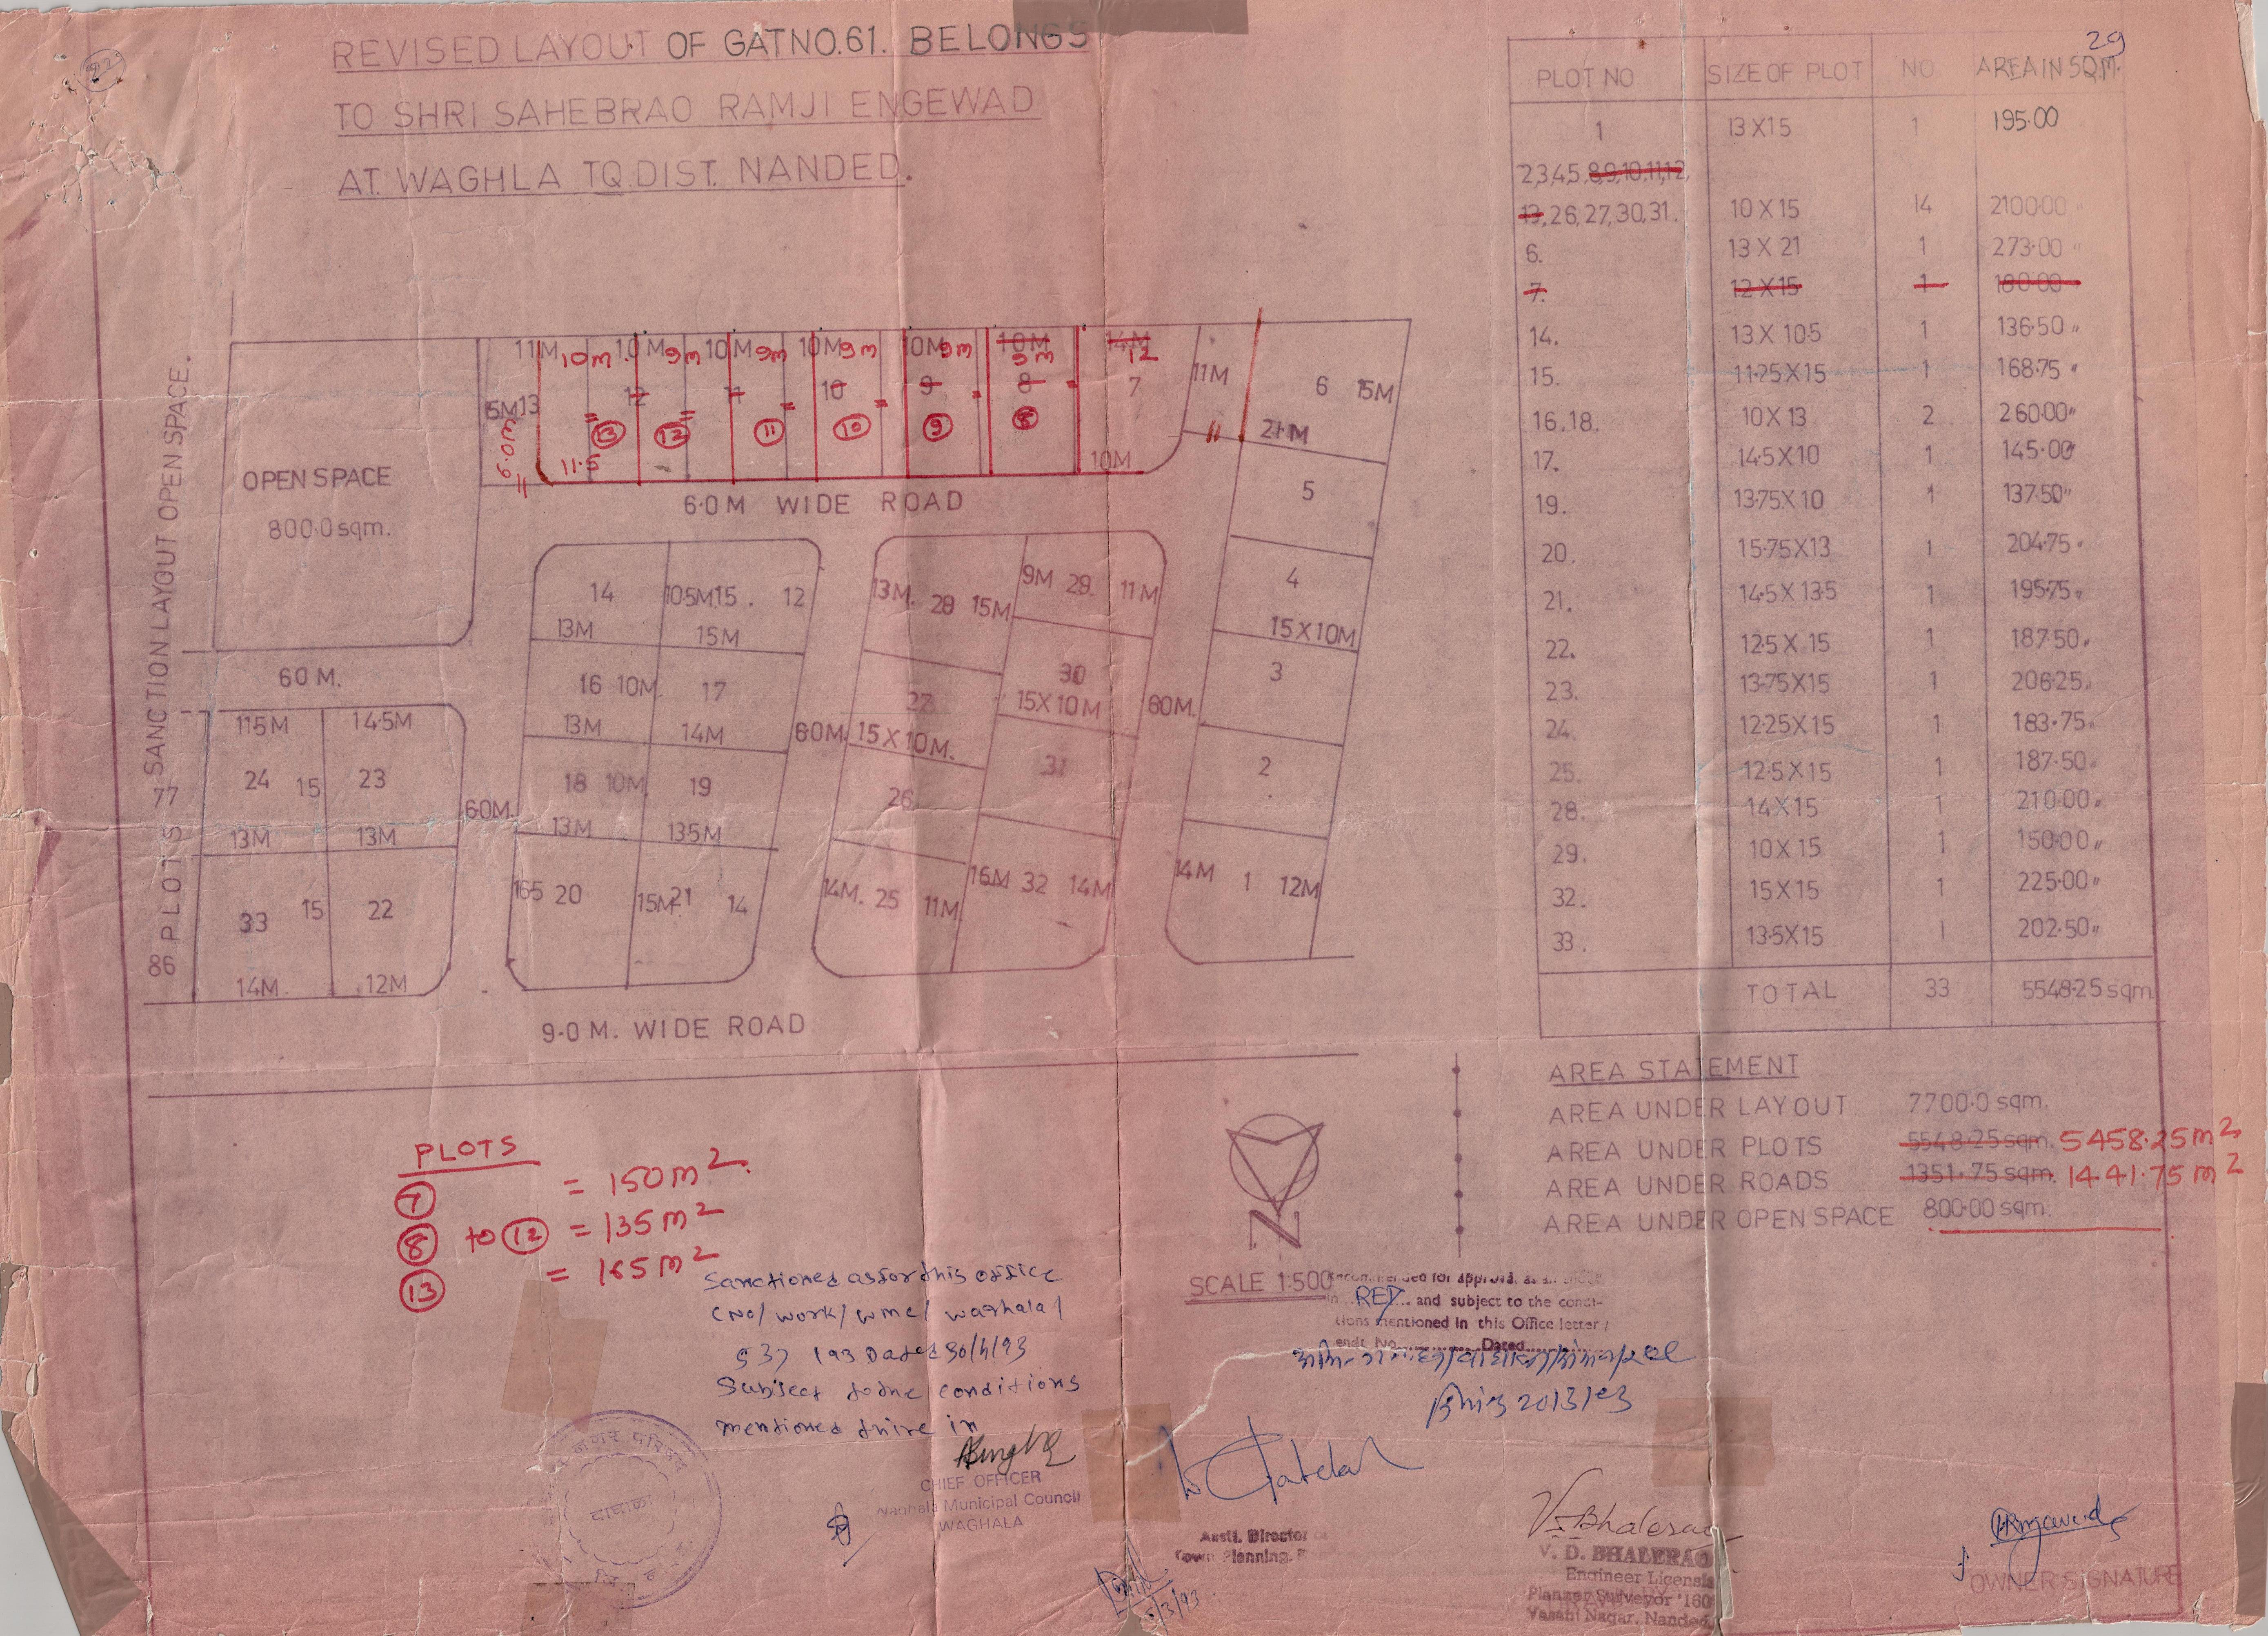 REVISED LAYOUT OF GAT NO. 61. BELONGS
TO SHRI SAHEBRAO RAMJI ENGEWAD
AT. WAGHLA TQ. DIST. NANDED.
22
29
PLOT NO SIZE OF PLOT NO AREA IN SQ.M.
1 13 X 15 1 195.00
2,3,4,5,8,9,10,11,12,
13,26,27,30,31. 10 X 15 14 2100.00 "
6. 13 X 21 1 273.00 "
7. 12 X 15 1 180.00
14. 13 X 10.5 1 136.50 "
15. 11.25 X 15 1 168.75 "
16,18. 10 X 13 2 260.00 "
17. 14.5 X 10 1 145.00 "
19. 13.75 X 10 1 137.50 "
20. 15.75 X 13 1 204.75 "
21. 14.5 X 13.5 1 195.75 "
22. 12.5 X 15 1 187.50 "
23. 13.75 X 15 1 206.25 "
24. 12.25 X 15 1 183.75 "
25. 12.5 X 15 1 187.50 "
28. 14 X 15 1 210.00 "
29. 10 X 15 1 150.00 "
32. 15 X 15 1 225.00 "
33. 13.5 X 15 1 202.50 "
TOTAL 33 5548.25 sqm
86 PLOTS 77 SANCTION LAYOUT OPEN SPACE.
OPEN SPACE
800.0 sqm.
11M 10m 10M 9m 10M 9m 10M 9m 10M 9m 10M 9m 14M 12
15M 13 12 11 10 9 8 7 11M 6 15M
6.0m 13 12 11 10 9 8 11 21M
11.5 10M
6.0 M WIDE ROAD
5
14 10.5M 15. 12
13M 15M
13M. 28 15M 9M 29. 11M
4
15 X 10M
60 M.
16 10M 17
13M 14M
27
15 X 10M.
30
15 X 10M
60M.
60M.
3
11.5M 14.5M
24 15 23
13M 13M
60M.
18 10M 19
13M 13.5M
26
31
2
33 15 22
14M. 12M
16.5 20 15M 21 14
14M. 25 11M 16M 32 14M
14M 1 12M
9.0 M. WIDE ROAD
AREA STATEMENT
AREA UNDER LAYOUT 7700.0 sqm.
AREA UNDER PLOTS 5548.25 sqm. 5458.25 m2
AREA UNDER ROADS 1351.75 sqm. 1441.75 m2
AREA UNDER OPEN SPACE 800.00 sqm.
PLOTS
7 = 150 m2.
8 to 12 = 135 m2
13 = 165 m2
N
SCALE 1:500
Sanctioned as for this office
(No/work/wmc/waghala/
537 /93 Dated 30/4/93
Subject to the conditions
mentioned there in
CHIEF OFFICER
Waghala Municipal Council
WAGHALA
नगर परिषद
वाघाळा
Recommended for approval as amended
in RED and subject to the condi-
tions mentioned in this Office letter /
endt. No. Dated
Asstt. Director of
Town Planning.
V. D. BHALERAO
Engineer Licensed
Planner Surveyor 160
Vasant Nagar, Nanded.
OWNER SIGNATURE